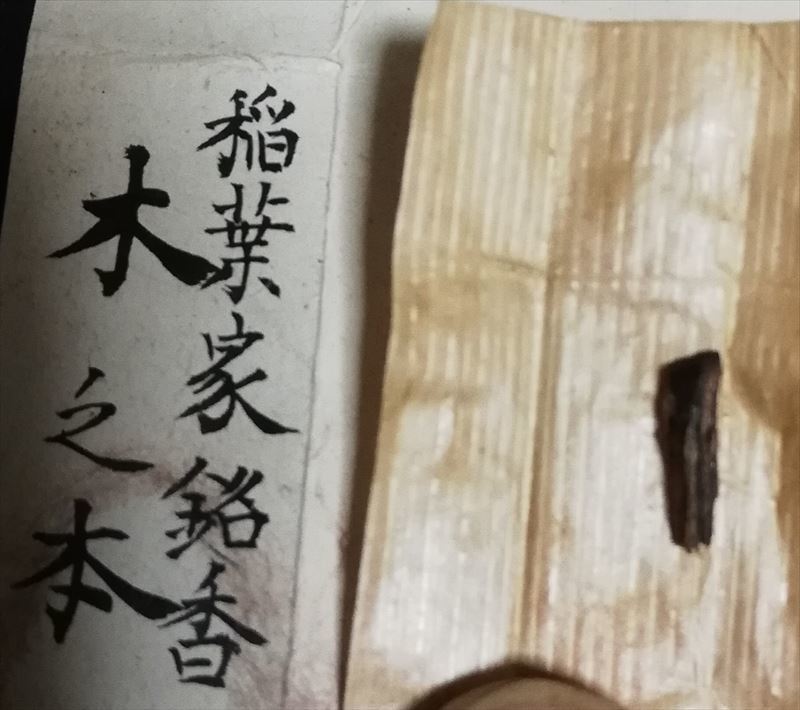 稲葉家銘香
木之本